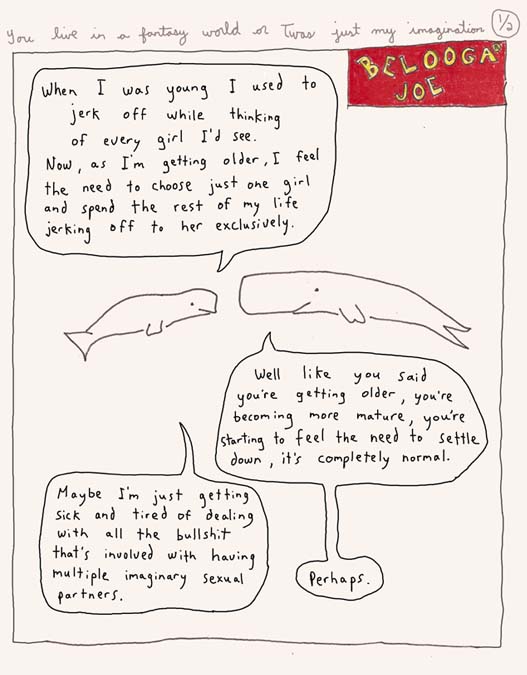 You live in a fantasy world or Twas just my imagination 1/2
BELOOGA
JOE
When I was young I used to
jerk off while thinking
of every girl I'd see.
Now, as I'm getting older, I feel
the need to choose just one girl
and spend the rest of my life
jerking off to her exclusively.
Well like you said
you're getting older, you're
becoming more mature, you're
starting to feel the need to settle
down, it's completely normal.
Maybe I'm just getting
sick and tired of dealing
with all the bullshit
that's involved with having
multiple imaginary sexual
partners.
Perhaps.